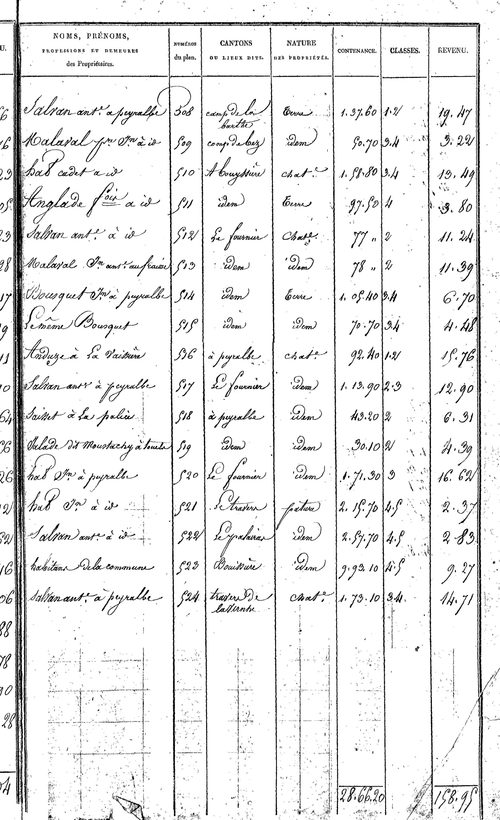 NOMS, PRÉNOMS, PROFESSIONS ET DEMEURES des Propriétaires. NUMÉROS du plan. CANTONS OU LIEUX DITS. NATURE DES PROPRIÉTÉS. CONTENANCE. CLASSES. REVENU.
Salvan ant.e a peyralbe 508 camp de la barthe terre 1.37.60 1.2 19.47
Malaval Jn à id 509 camp de bez idem 50.70 3.4 3.22
hab cadet a id 510 chat.e 1.58.80 3.4 13.49
Anglade fois a id 511 idem terre 97.50 4 3.80
Salvan ant.e à id 512 Le fournier chat.e 77 " 2 11.24
Malaval ant.e 513 idem idem 78 " 2 11.39
Bousquet Jn à peyralbe 514 idem terre 1.05.40 3.4 6.70
Le même Bousquet 515 idem idem 70.70 3.4 4.48
Anduze à La Vaissière 516 à peyralbe chat.e 92.40 1.2 15.76
Salvan ant.e à peyralbe 517 Le fournier idem 1.13.90 2.3 12.90
à La 518 à peyralbe idem 43.20 2 6.31
dit Moustachy à 519 idem idem 30.10 2 4.39
hab Jn à peyralbe 520 Le fournier idem 1.71.30 3 16.62
hab Jn à id 521 Le travers pature 2.15.70 4.5 2.37
Salvan ant.e à id 522 idem 2.57.70 4.5 2.83
habitans de la commune 523 Bouissière idem 9.93.10 4.5 9.27
Salvan ant.e à peyralbe 524 travers de lavernhe chat.e 1.73.10 3.4 14.71
28.66.20 158.95